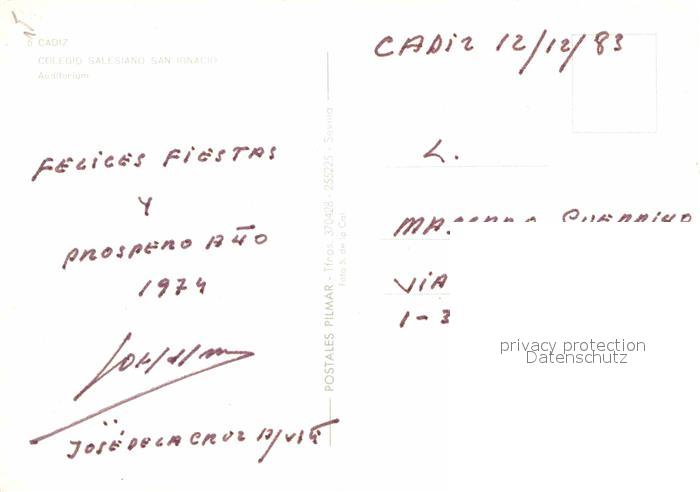 5 CADIZ
COLEGIO SALESIANO SAN IGNACIO
Auditorium
CADIZ 12/12/83
FELICES FIESTAS
Y
PROSPERO AÑO
1974
L.
MA.
VIA
1-3
JOSÉ DE LA CRUZ
POSTALES PILMAR - Tfnos. 370428 - 255225 - Sevilla
Foto S. de la Cal
privacy protection
Datenschutz